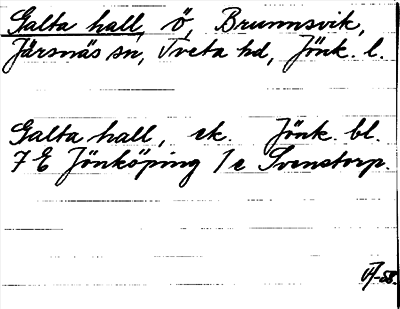 Galta hall, ö, Brunnsvik,
Järsnäs sn, Tveta hd, Jönk. l.
Galta hall, ek. Jönk. bl.
7 E Jönköping 1 e Svenstorp.
-58.